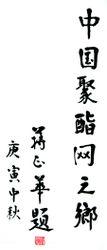 中国聚酯网之乡
蒋正华题
庚寅中秋